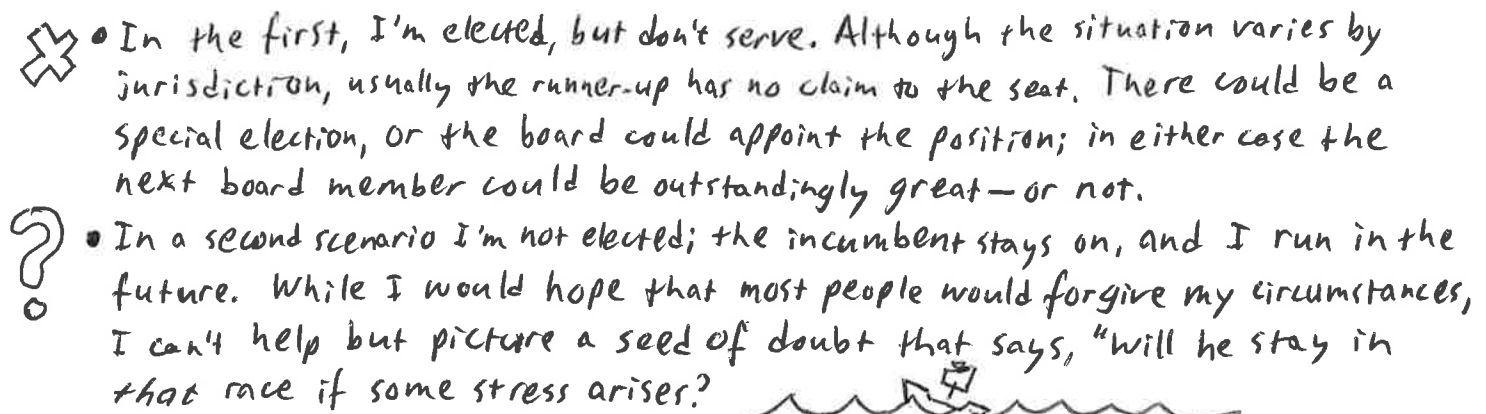 • In the first, I'm elected, but don't serve. Although the situation varies by
jurisdiction, usually the runner-up has no claim to the seat. There could be a
special election, or the board could appoint the position; in either case the
next board member could be outstandingly great—or not.
• In a second scenario I'm not elected; the incumbent stays on, and I run in the
future. While I would hope that most people would forgive my circumstances,
I can't help but picture a seed of doubt that says, "Will he stay in
that race if some stress arises?